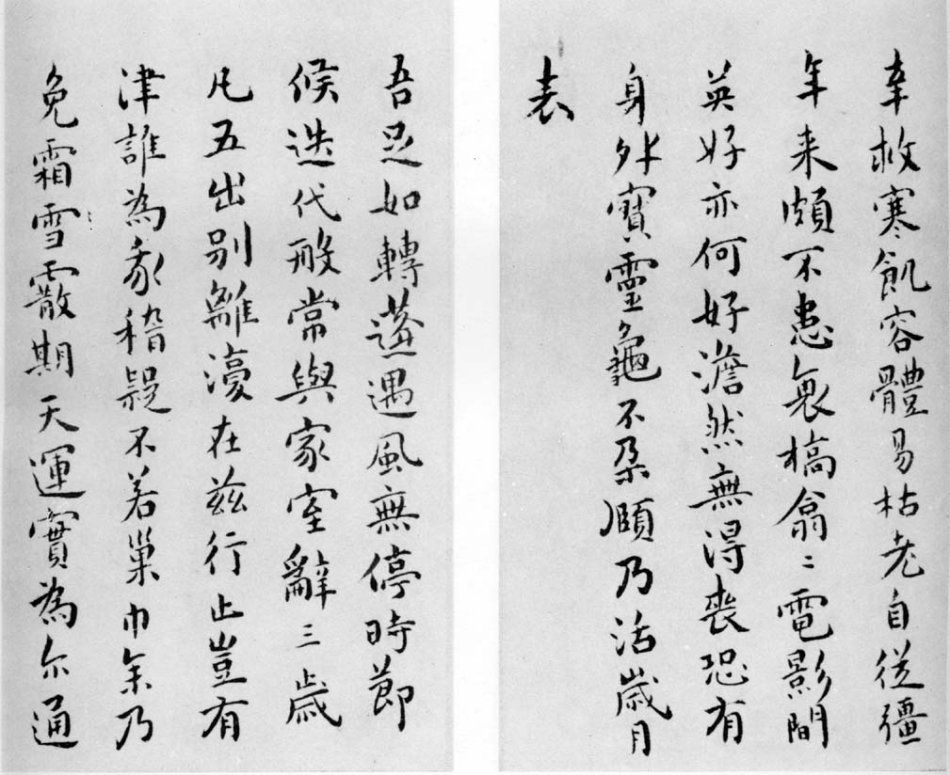 幸救寒飢容體易枯老自從彊
年来頗不患衰槁翕〻電影間
英好亦何好澹然無得喪恐有
身外寶靈龜不朶頤乃活歲月
表
吾足如轉蓬遇風無停時節
候迭代般常與家室辭三歲
凡五出别離濅在兹行止豈有
津誰為我稽疑不若巢巾余乃
免霜雪霰期天運實為尔通